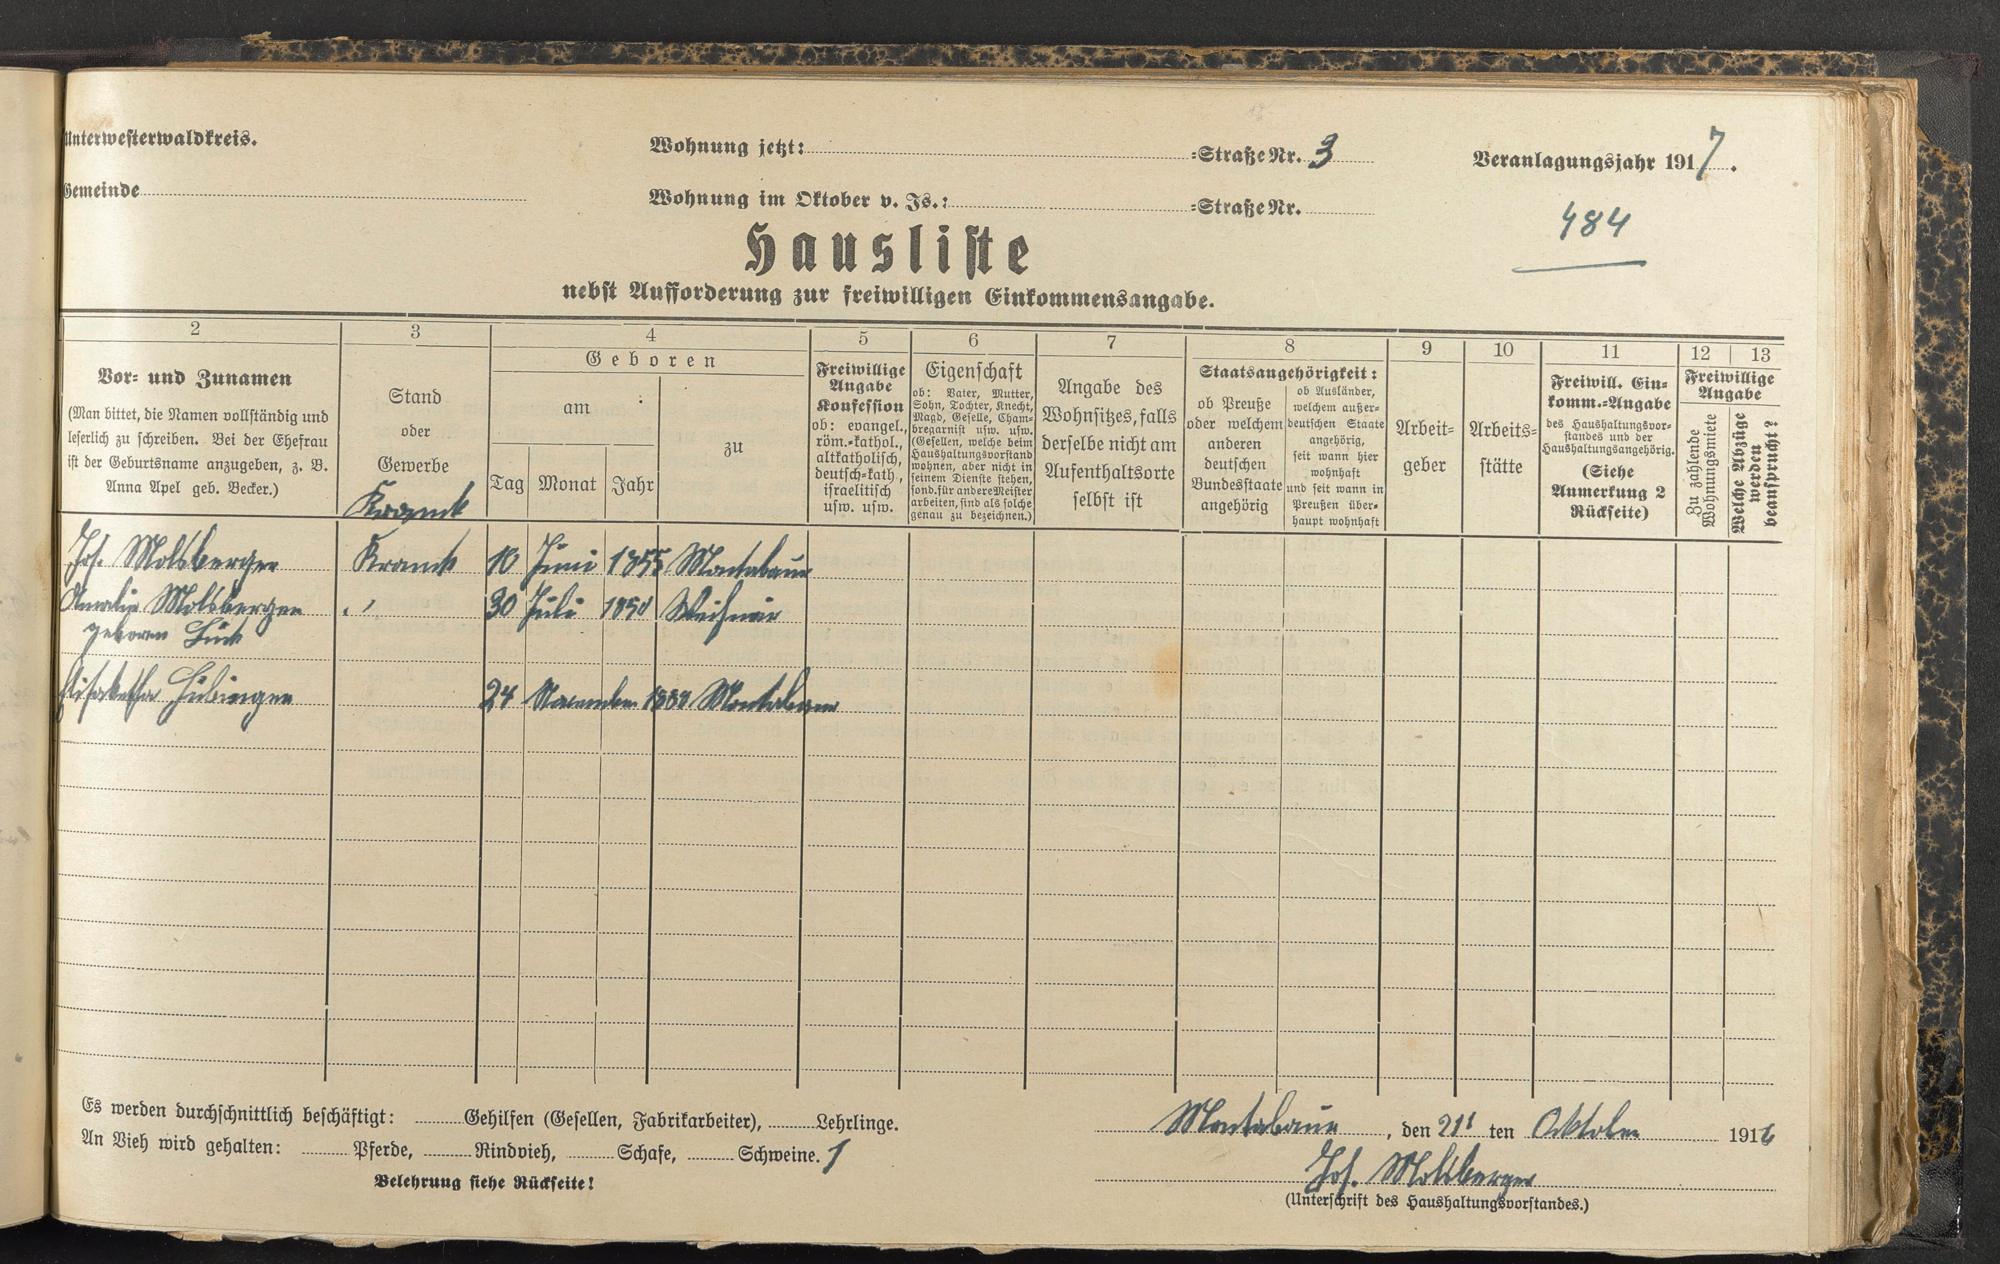 Unterwesterwaldkreis.
Wohnung jetzt: -Straße Nr. 3
Veranlagungsjahr 1917.
Gemeinde
Wohnung im Oktober v. Js.: -Straße Nr.
484
Hausliste
nebst Aufforderung zur freiwilligen Einkommensangabe.
2 3 4 5 6 7 8 9 10 11 12 13
Vor- und Zunamen
(Man bittet, die Namen vollständig und
leserlich zu schreiben. Bei der Ehefrau
ist der Geburtsname anzugeben, z. B.
Anna Apel geb. Becker.)
Stand
oder
Gewerbe
Geboren
am
Tag Monat Jahr
zu
Freiwillige
Angabe
Konfession
ob: evangel.,
röm.-kathol.,
altkatholisch,
deutsch-kath.,
israelitisch
usw. usw.
Eigenschaft
ob: Vater, Mutter,
Sohn, Tochter, Knecht,
Magd, Geselle, Cham-
bregarnist usw. usw.
(Gesellen, welche beim
Haushaltungsvorstand
wohnen, aber nicht in
seinem Dienste stehen,
sond. für andere Meister
arbeiten, sind als solche
genau zu bezeichnen.)
Angabe des
Wohnsitzes, falls
derselbe nicht am
Aufenthaltsorte
selbst ist
Staatsangehörigkeit:
ob Preuße
oder welchem
anderen
deutschen
Bundesstaate
angehörig
ob Ausländer,
welchem außer-
deutschen Staate
angehörig,
seit wann hier
wohnhaft
und seit wann in
Preußen über-
haupt wohnhaft
Arbeit-
geber
Arbeits-
stätte
Freiwill. Ein-
komm.-Angabe
des Haushaltungsvor-
standes und der
Haushaltungsangehörig.
(Siehe
Anmerkung 2
Rückseite)
Freiwillige
Angabe
Zu zahlende
Wohnungsmiete
Welche Abzüge
werden
beansprucht?
Jos. Molsberger 10 Juni 1855 Montabaur
Amalie Molsberger 30 Juli
geboren
Elisabetha Hübinger 24 November Montabaur
Es werden durchschnittlich beschäftigt: Gehilfen (Gesellen, Fabrikarbeiter), Lehrlinge.
An Vieh wird gehalten: Pferde, Rindvieh, Schafe, Schweine. 1
Belehrung siehe Rückseite!
Montabaur, den 21t ten Oktober 1916
Jos. Molsberger
(Unterschrift des Haushaltungsvorstandes.)